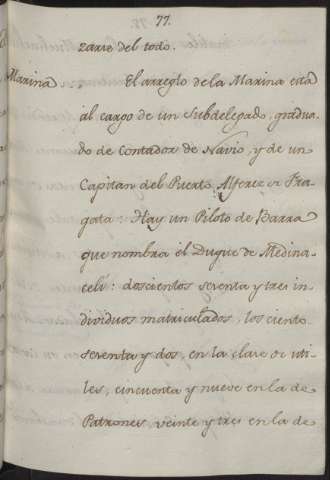 77.
zarse del todo.
Marina . . El arreglo de la Marina està
al cargo de un Subdelegado, gradua-
do de Contador de Navio, y de un
Capitan del Puerto, Alferez de Fra-
gata: Hay un Piloto de Barra
que nombra el Duque de Medina-
celi: doscientos setenta y tres in-
dividuos matriculados, los ciento
setenta y dos, en la clase de uti-
les, cincuenta y nueve en la de
Patrones, veinte y tres en la de